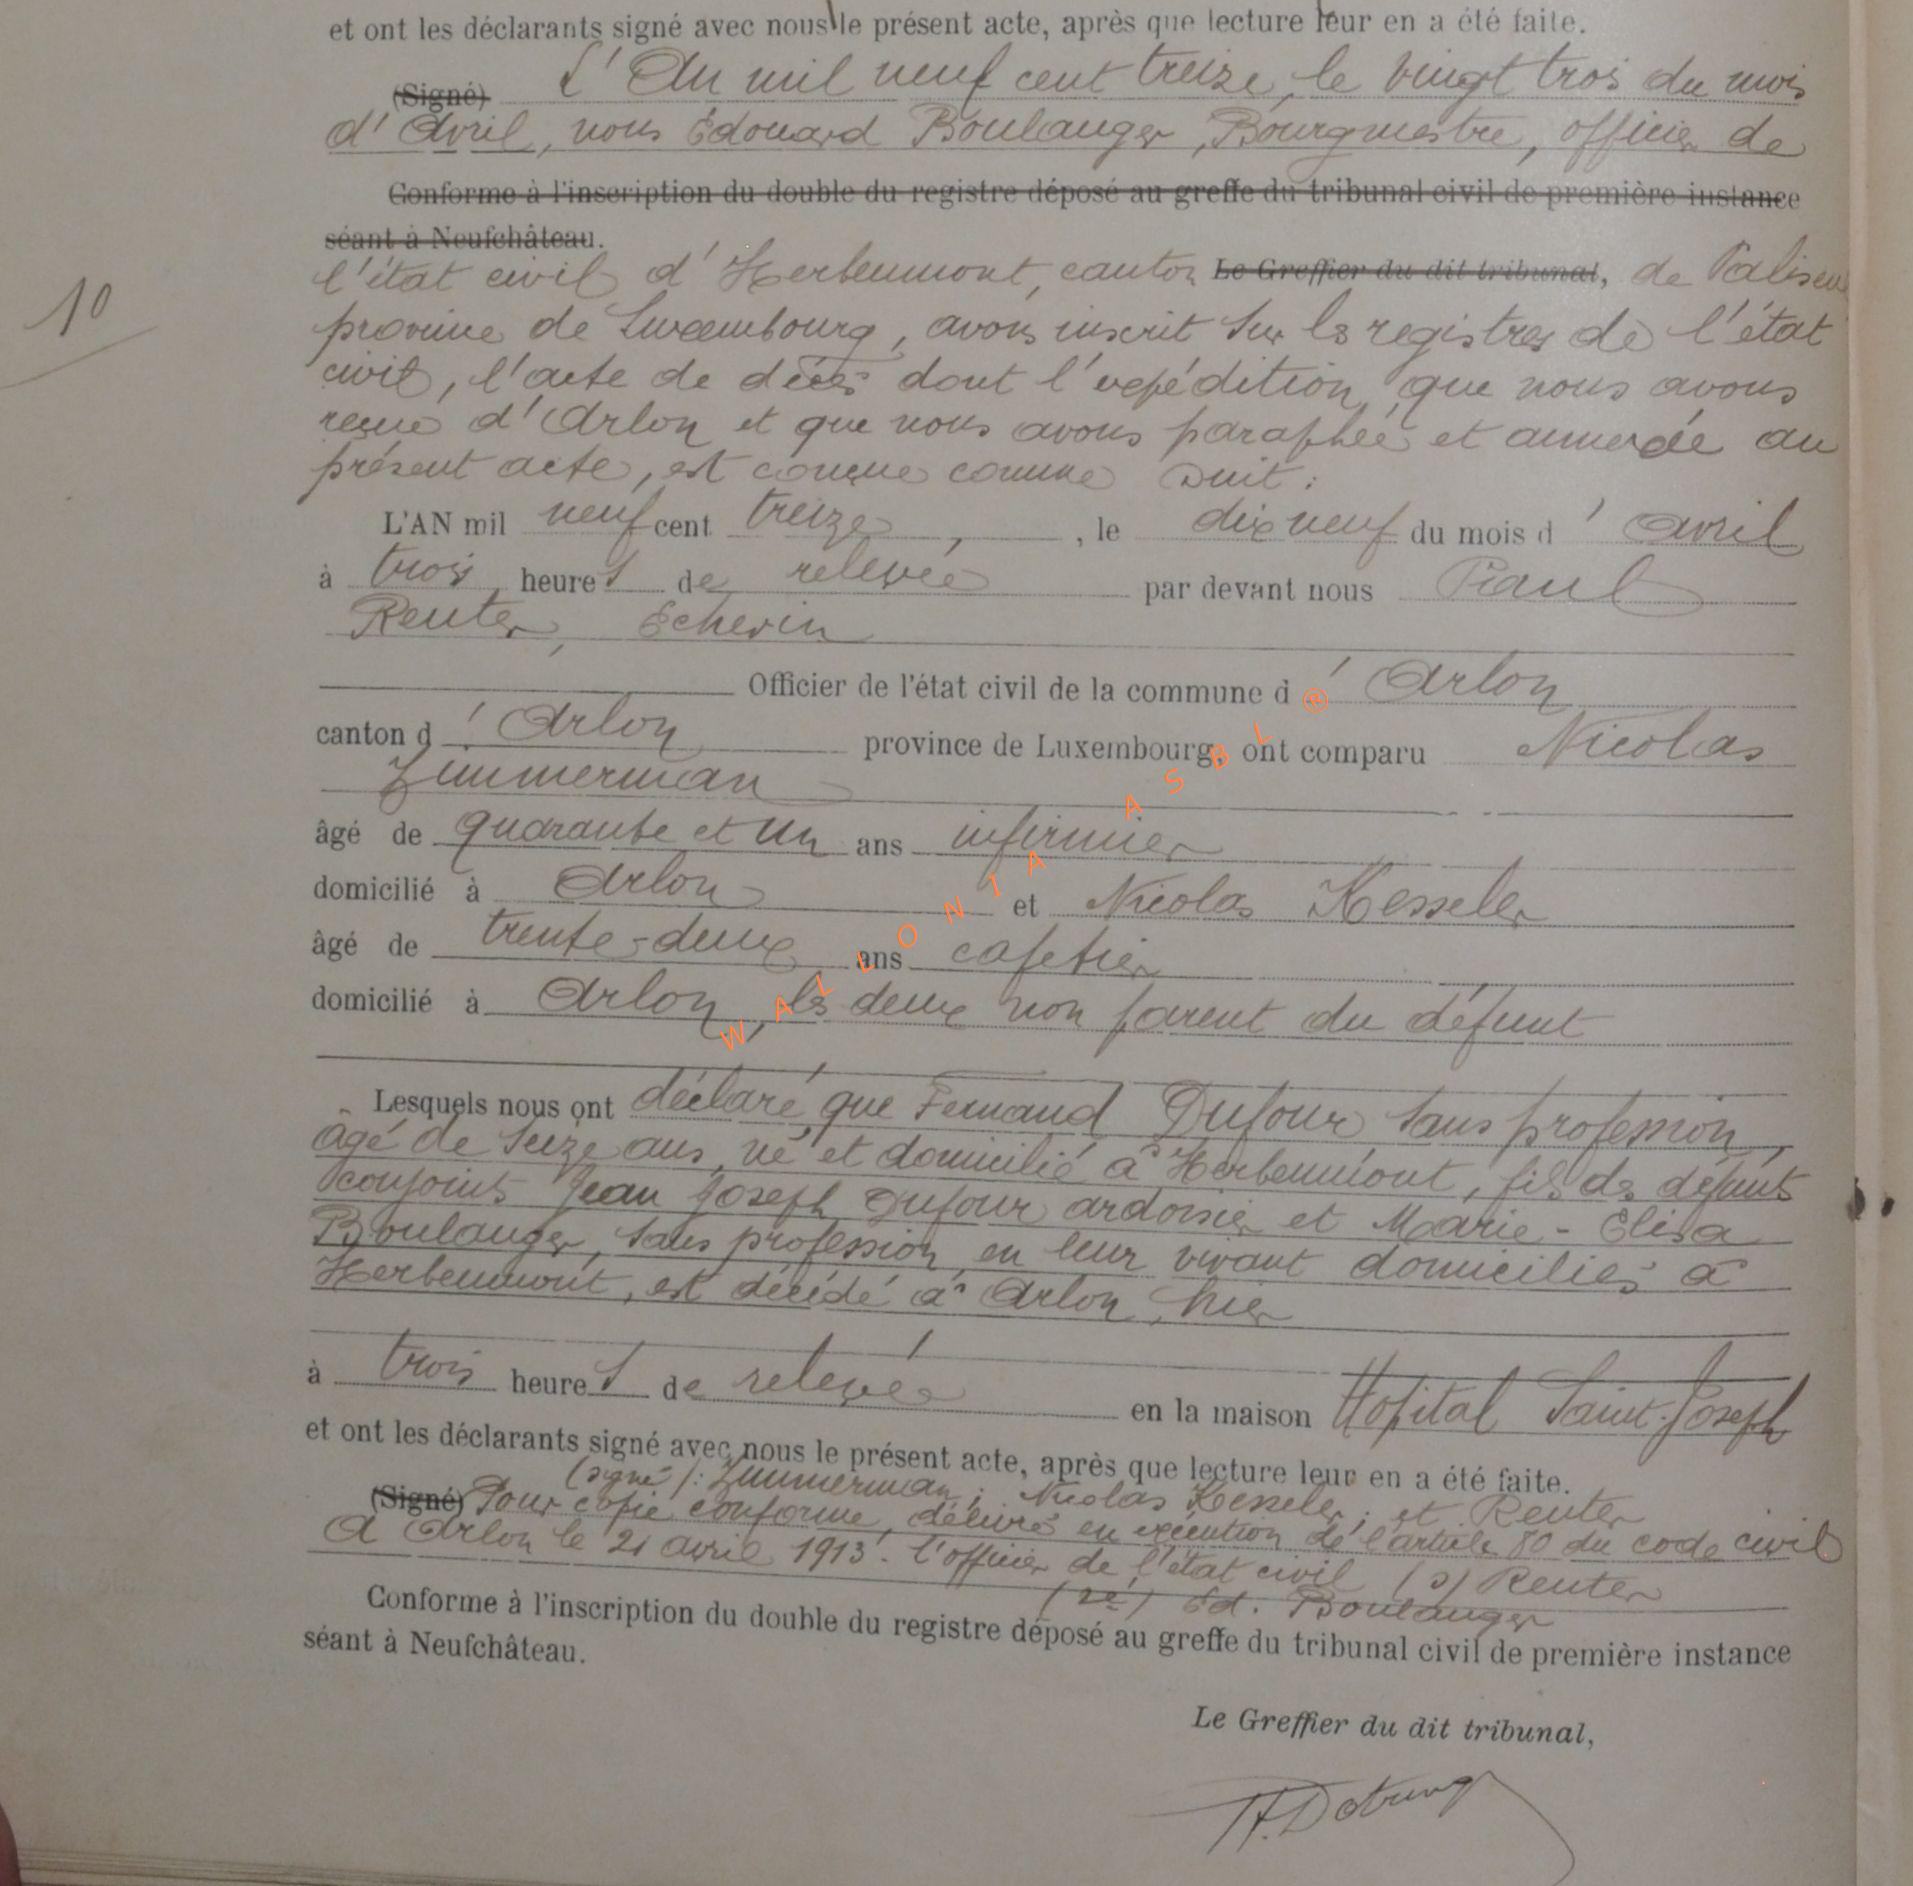 et ont les déclarants signé avec nous le présent acte, après que lecture leur en a été faite.
(Signé) L'An mil neuf cent treize, le vingt trois du mois
d'Avril, nous Edouard Boulanger, Bourgmestre, officier de
Conforme à l'inscription du double du registre déposé au greffe du tribunal civil de première instance
séant à Neufchâteau.
l'état civil d'Herbeumont, canton Le Greffier du dit tribunal, de Paliseu
10
province de Luxembourg, avons inscrit sur les registres de l'état
civil, l'acte de décès dont l'expédition, que nous avons
reçue d'Arlon et que nous avons paraphée et annexée au
présent acte, est conçue comme suit :
L'AN mil neuf cent treize, , le dix neuf du mois d' avril
à trois heures de relevée par devant nous Paul
Reuter, Echevin
Officier de l'état civil de la commune d' Arlon
canton d' Arlon province de Luxembourg, ont comparu Nicolas
Zimmerman
âgé de quarante et un ans infirmier
domicilié à Arlon et Nicolas Kesseler
âgé de trente-deux ans cafetier
domicilié à Arlon, les deux non parent du défunt
WALLONIA ASBL ®
Lesquels nous ont déclaré que Fernand Dufour sans profession,
âgé de seize ans, né et domicilié à Herbeumont, fils des défunts
conjoints Jean Joseph Dufour ardoisier et Marie-Elisa
Boulanger, sans profession, en leur vivant domiciliés à
Herbeumont, est décédé à Arlon, hier
à trois heures de relevée en la maison Hopital Saint-Joseph
et ont les déclarants signé avec nous le présent acte, après que lecture leur en a été faite.
(signé) : Zimmerman ; Nicolas Kesseler ; et Reuter
(Signé) Pour copie conforme, délivrée en exécution de l'article 80 du code civil
A Arlon le 21 avril 1913. l'officier de l'état civil (s) Reuter
(sé) Ed. Boulanger
Conforme à l'inscription du double du registre déposé au greffe du tribunal civil de première instance
séant à Neufchâteau.
Le Greffier du dit tribunal,